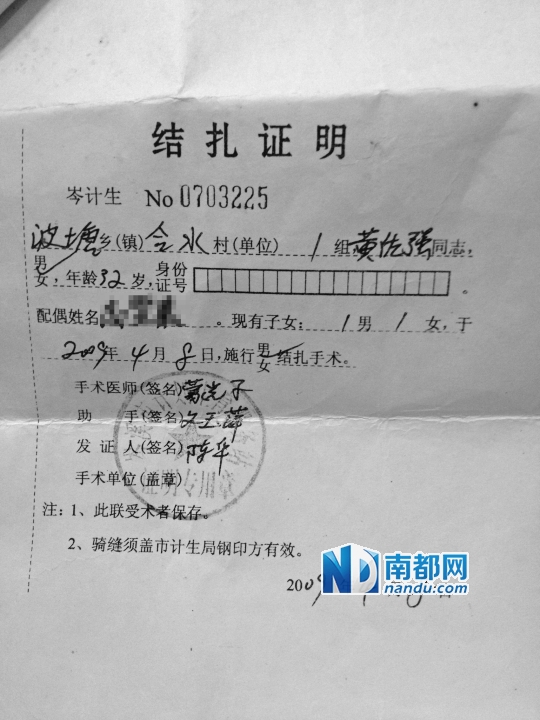 结扎证明
岑计生 No 0703225
波塘乡(镇)合水村(单位)1组黄佐强同志,
男
女,年龄32岁,身份证号。
配偶姓名。现有子女:1男1女,于
2009年4月8日,施行男女结扎手术。
手术医师(签名)
助 手(签名)
发 证 人(签名)陈华
手术单位(盖章)
证明专用章
注:1、此联受术者保存。
2、骑缝须盖市计生局钢印方有效。
2009
ND 南都网
nandu.com